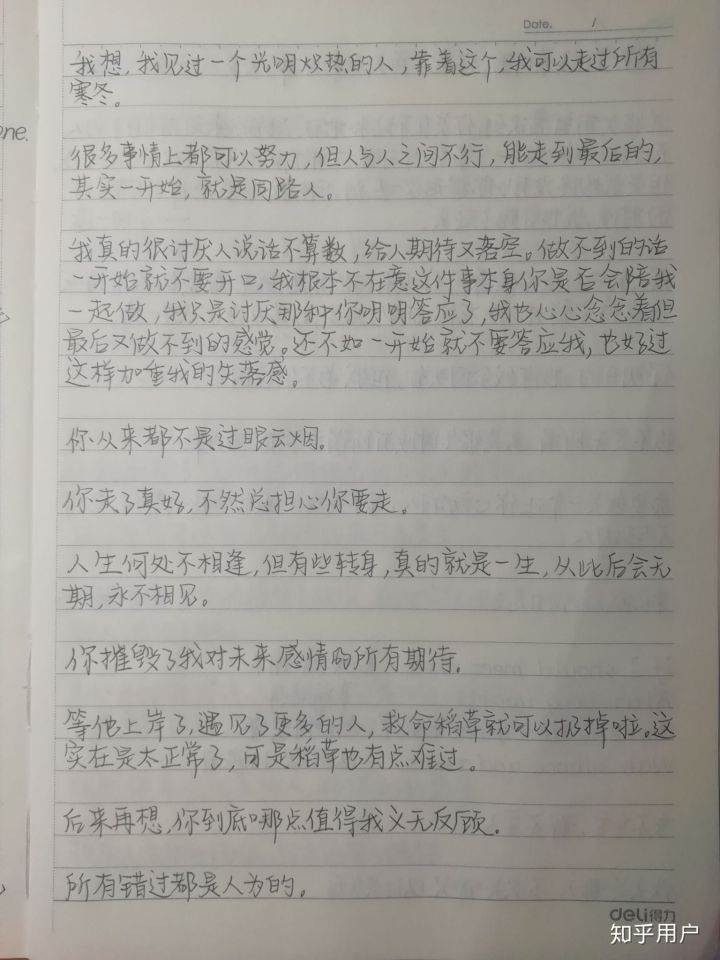 Date.      /
one.
我想,我见过一个光明炽热的人,靠着这个,我可以走过所有
寒冬。
很多事情上都可以努力,但人与人之间不行,能走到最后的,
其实一开始,就是同路人。
我真的很讨厌人说话不算数,给人期待又落空。做不到的话
一开始就不要开口,我根本不在意这件事本身你是否会陪我
一起做,我只是讨厌那种你明明答应了,我也心心念念着但
最后又做不到的感觉。还不如一开始就不要答应我,也好过
这样加重我的失落感。
你从来都不是过眼云烟。
你走了真好,不然总担心你要走。
人生何处不相逢,但有些转身,真的就是一生,从此后会无
期,永不相见。
你摧毁了我对未来感情的所有期待。
等他上岸了,遇见了更多的人,救命稻草就可以扔掉啦。这
实在是太正常了,可是稻草也有点难过。
后来再想,你到底哪点值得我义无反顾。
所有错过都是人为的。
deli得力
知乎用户